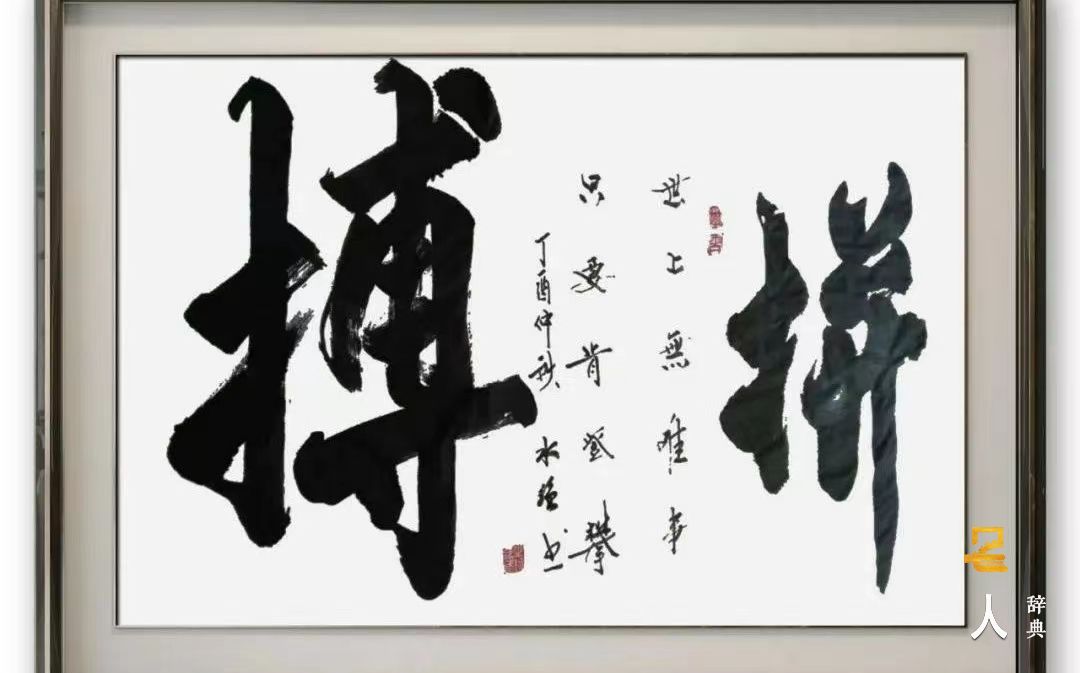 拼搏
世上無难事
只要肯登攀
丁酉仲秋 水强书
名人
辞典